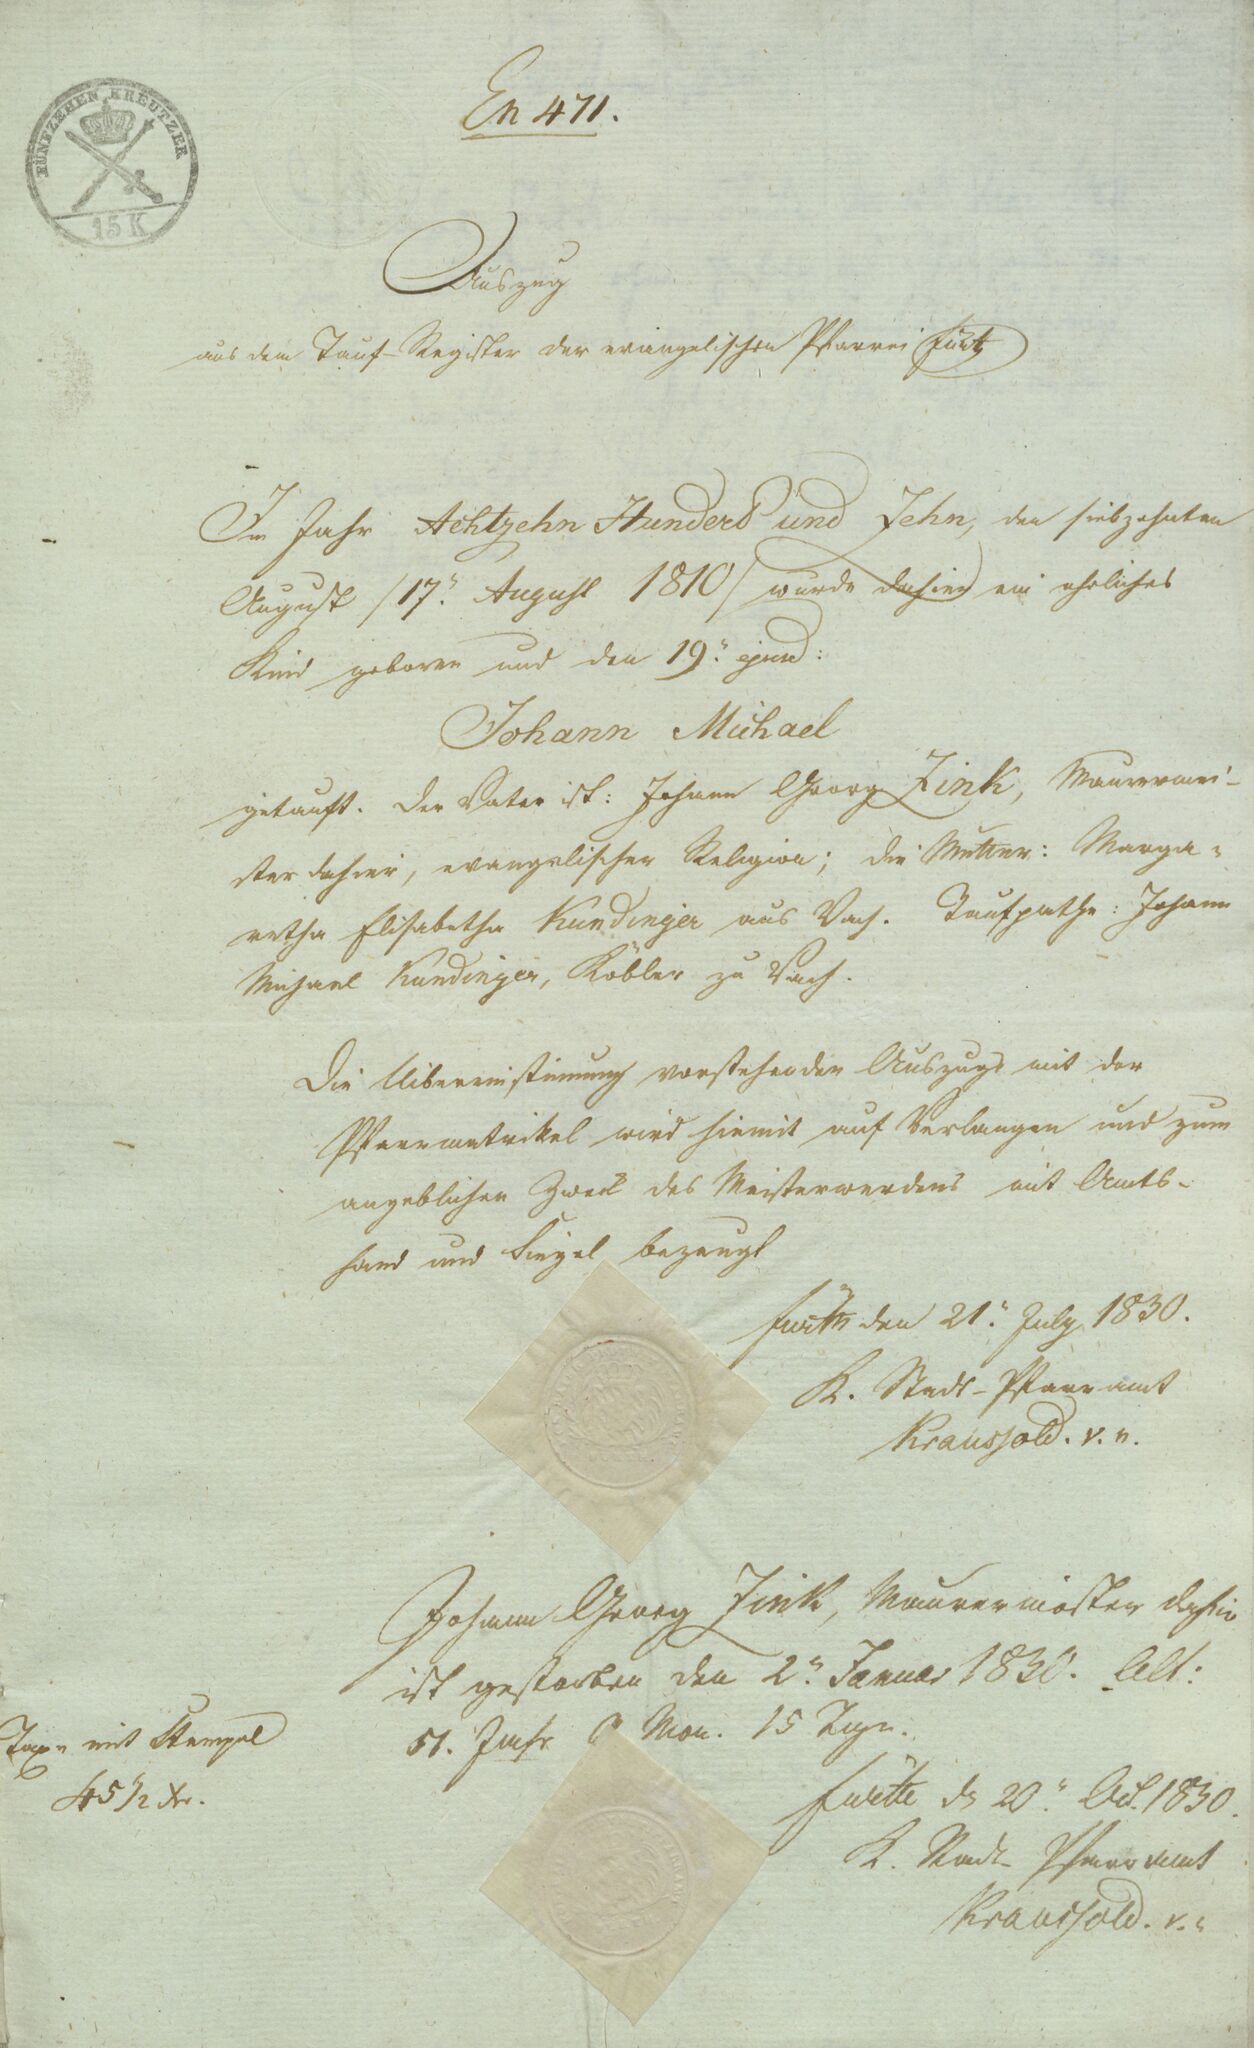 FÜNFZEHEN KREUTZER
15 K
En 471.
Auszug
aus dem Tauf-Register der evangelischen Pfarrei Fürth
Im Jahr Achtzehn Hundert und Zehn, den siebzehnten
August /17ⁿ. August 1810/ wurde dahier ein eheliches
Kind geboren und den 19ⁿ. ejusd:
Johann Michael
getauft. Der Vater ist: Johann Georg Zink, Maurermei-
ster dahier, evangelischer Religion; die Mutter: Marga-
retha Elisabetha Kundinger aus Vach. Taufpathe: Johann
Michael Kundinger, Köbler zu Vach.
Die Uibereinstimmung vorstehenden Auszugs mit der
Pfarrmatrikel wird hiemit auf Verlangen und zum
angeblichen Zweck des Meisterwerdens mit Amts-
hand und Siegel bezeugt
Fürth den 21ⁿ. July 1830.
K. Stadt-Pfarramt
Kraussold. v. n.
Johann Georg Zink, Maurermeister dahier
ist gestorben den 2ⁿ. Januar 1830. Alt:
51. Jahr Mon. 15 Tage.
Taxe mit Stempel
45 1/2 Xr.
Fürth d 20ⁿ. Oct. 1830.
K. Stadt-Pfarramt
Kraussold. v. n